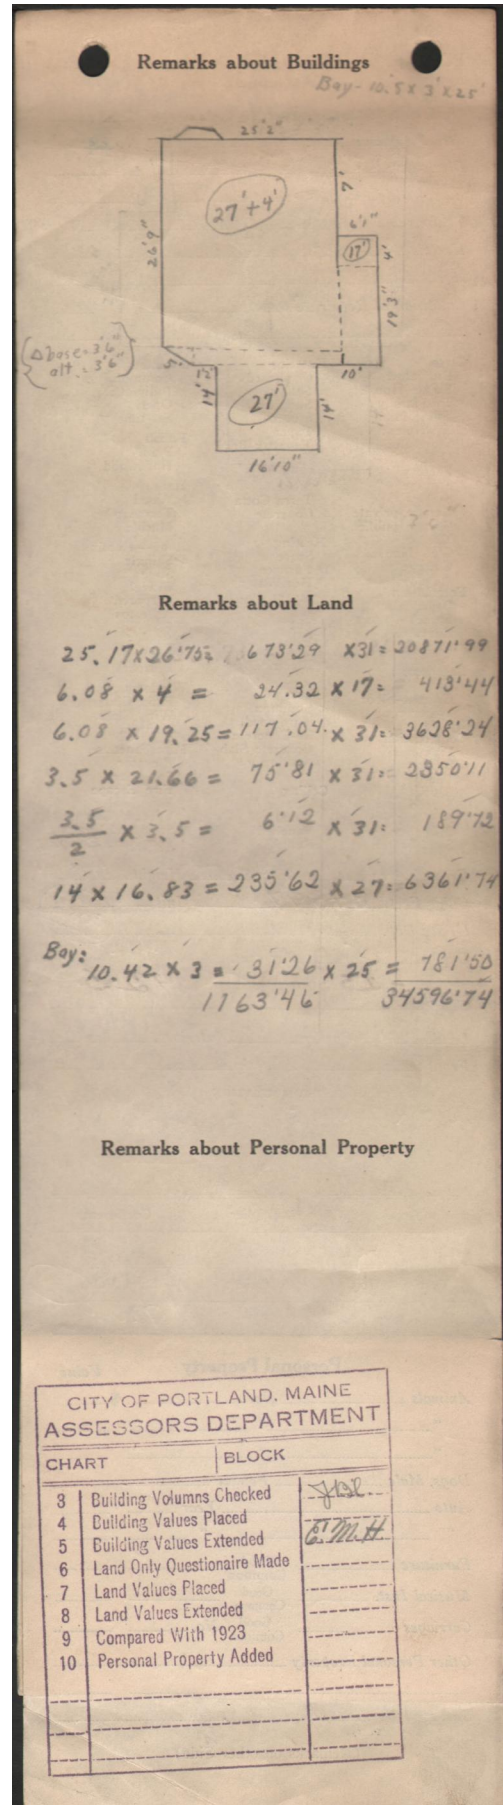 Remarks about Buildings
Bay - 10.5 x 3' x 25'
25'2"
27'+4'
7'
26'9"
6'1"
17'
4'
19'3"
{Δ base = 3'6"
alt. = 3'6"}
5'
12"
10'
14'
27'
14'
16'10"
3'6"
Remarks about Land
25.17 x 26'75 = 673'29 x 31 = 20871'99
6.08 x 4 = 24.32 x 17 = 413'44
6.08 x 19.25 = 117.04 x 31 = 3628'24
3.5 x 21.66 = 75'81 x 31 = 2350'11
3.5/2 x 3.5 = 6'12 x 31 = 189'72
14 x 16.83 = 235'62 x 27 = 6361'74
Bay: 10.42 x 3 = 31'26 x 25 = 781'50
1163'46 34596'74
Remarks about Personal Property
CITY OF PORTLAND, MAINE
ASSESSORS DEPARTMENT
CHART BLOCK
3 Building Volumns Checked
4 Building Values Placed
5 Building Values Extended E.M.H.
6 Land Only Questionaire Made
7 Land Values Placed
8 Land Values Extended
9 Compared With 1923
10 Personal Property Added